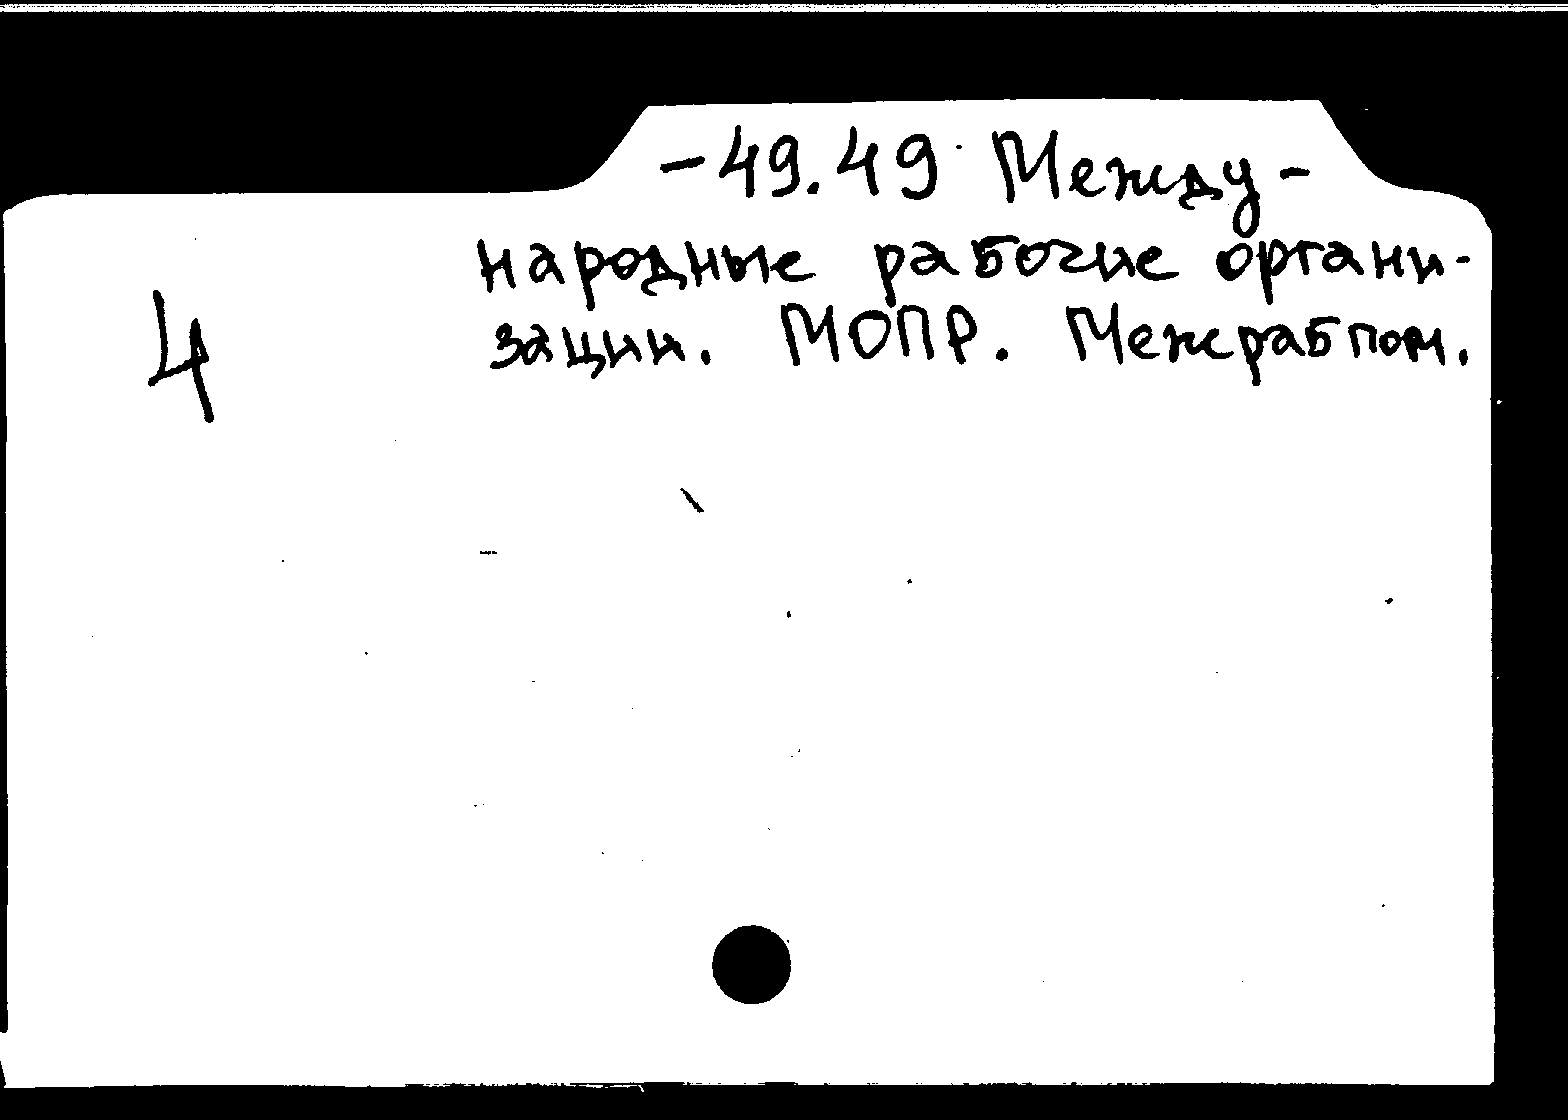 -49.49 Между-
народные рабочие органи-
зации. МОПР. Межрабпом.
4